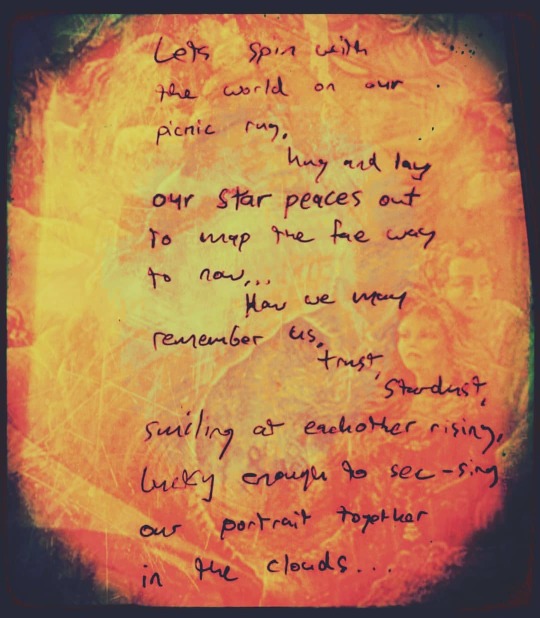 Lets spin with
the world on our
picnic rug.
hug and lay
our star peaces out
To map the fae way
to now...
How we may
remember us.
trust,
stardust,
smiling at eachother rising,
lucky enough to see-sing
our portrait together
in the clouds...